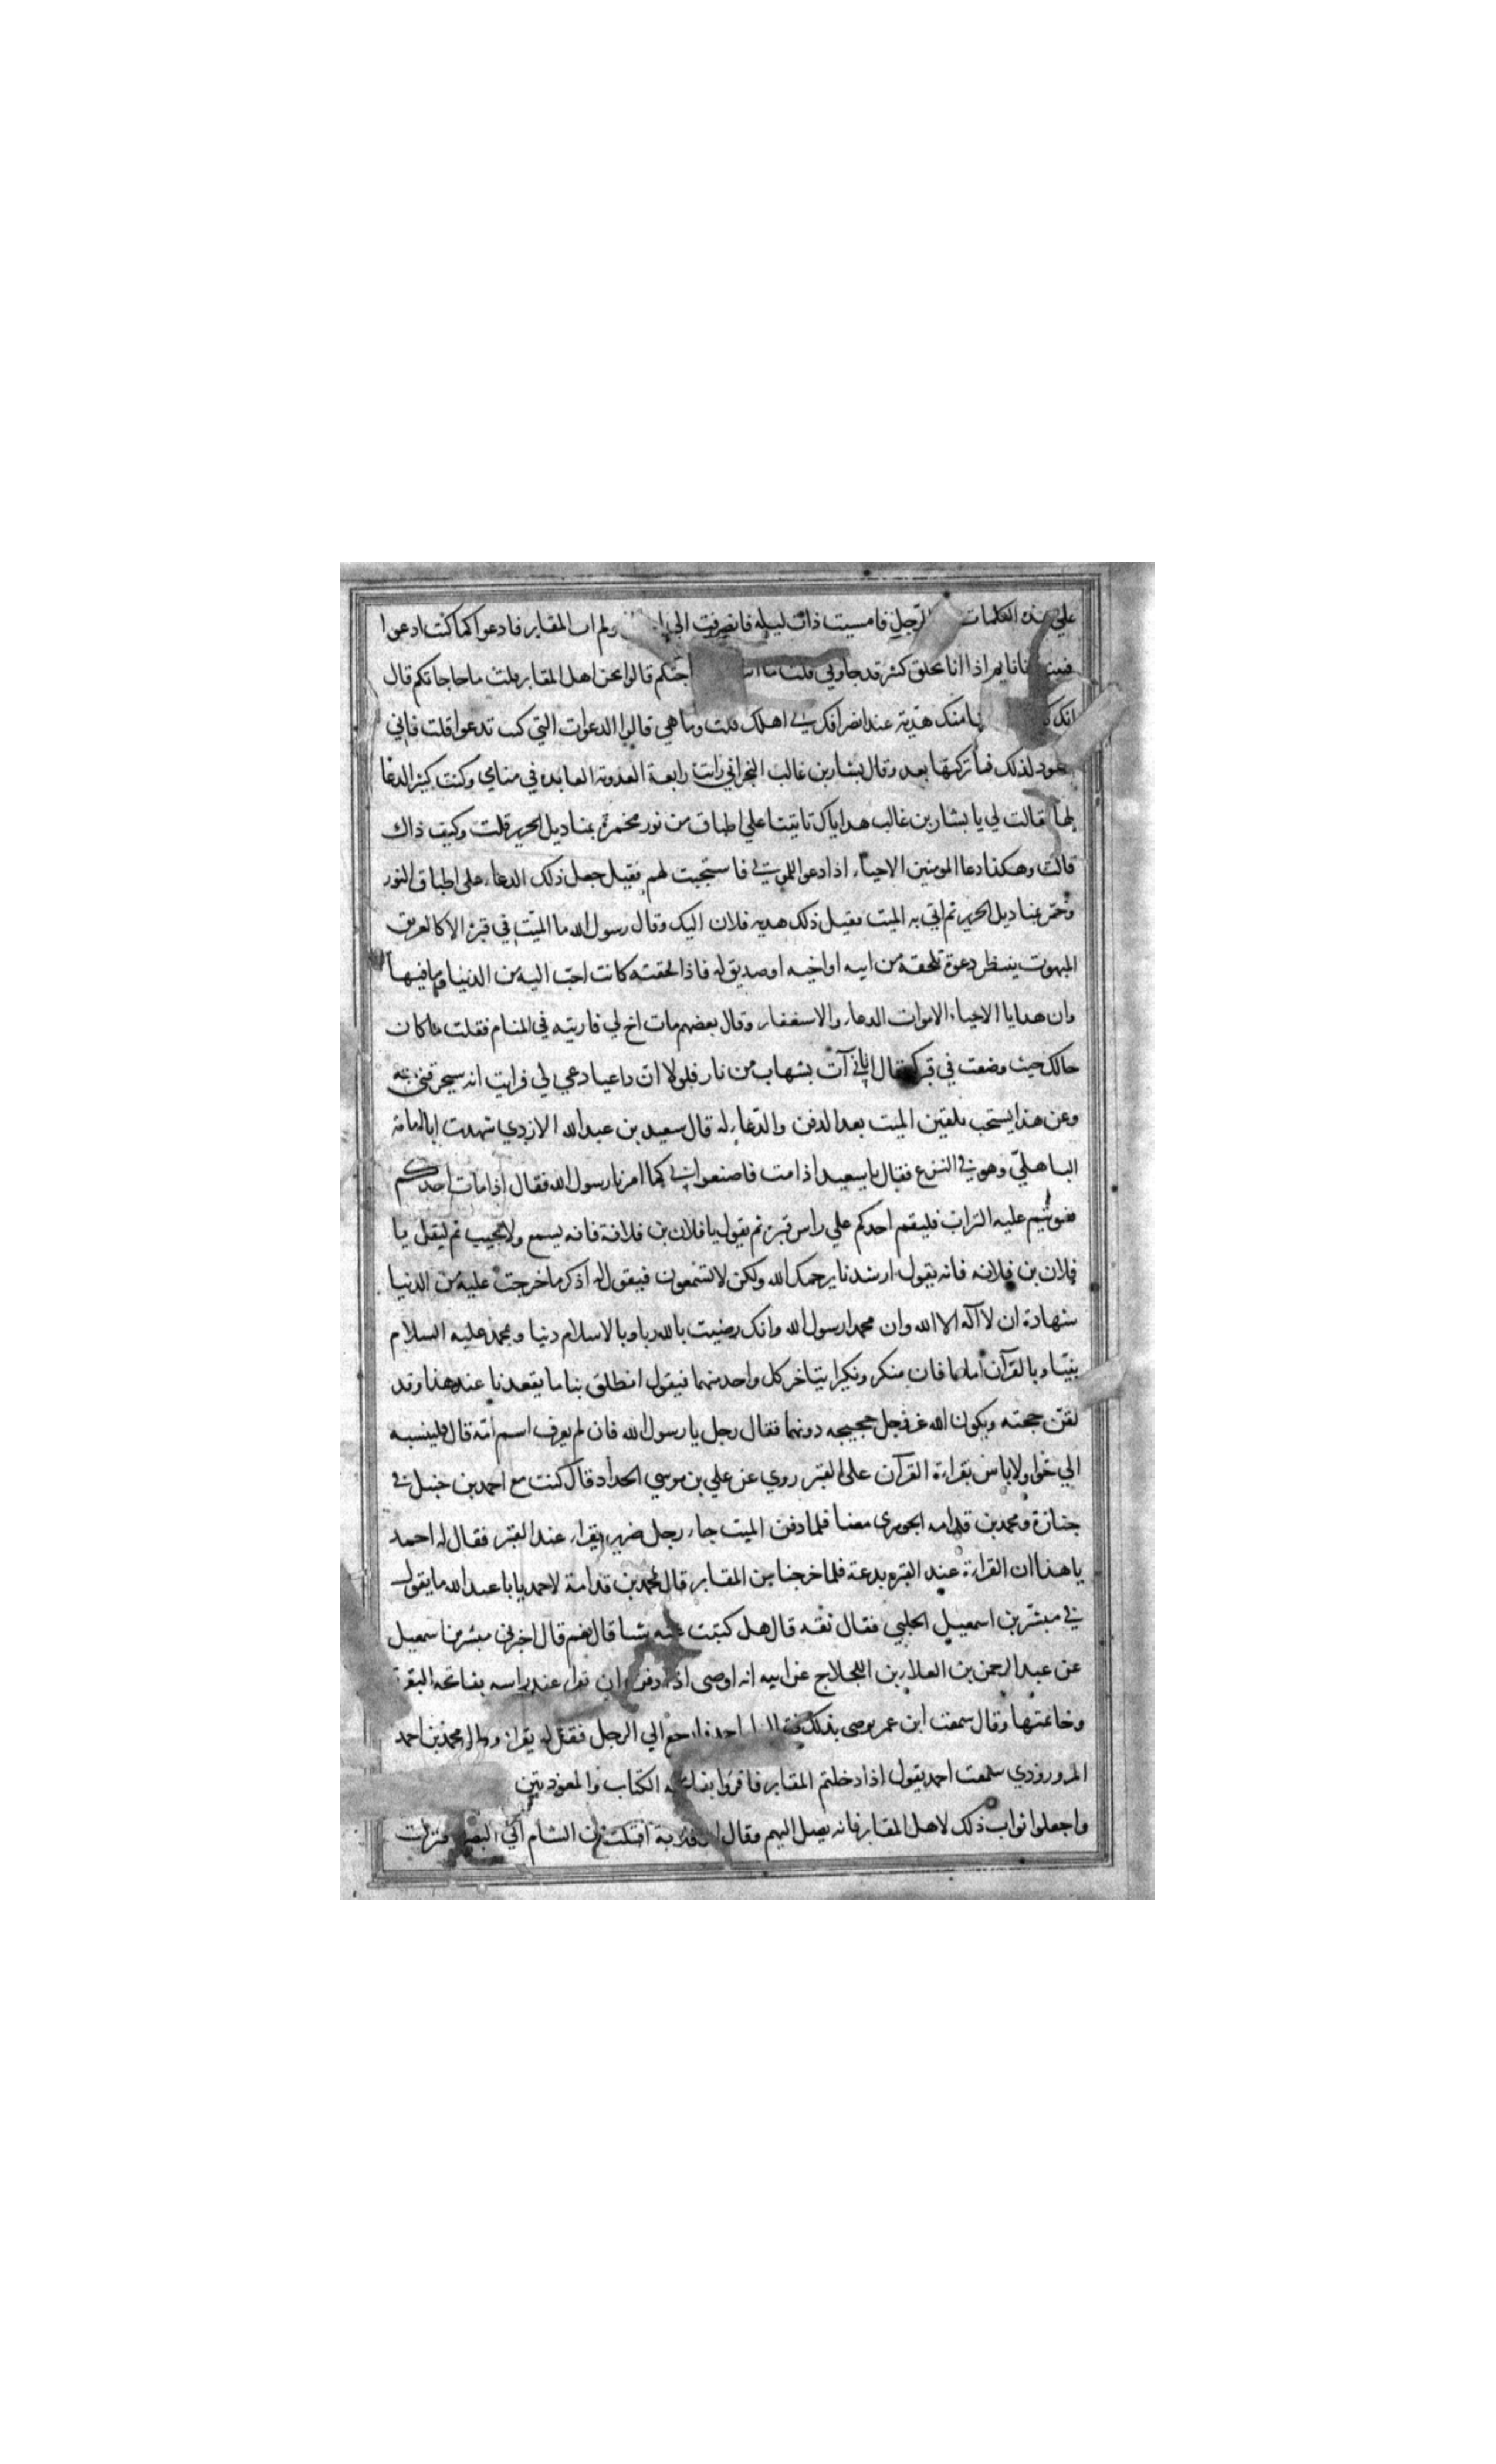 علي هذه الكلمات الرجل فامسيت ذات ليله فانصرفت الي ولم ات المقابر فادعوا كما كنت ادعوا
انا نايم اذا انا بخلق كثير قد جاوني قلت ما حاجتكم قالوا نحن اهل المقابر قلت ما حاجاتكم قال
انك منك هدية عند انصرافك الي اهلك قلت وما هي قالوا الدعوات التي كنت تدعوا قلت فاني
اعود لذلك فما تركتها بعد وقال بشار بن غالب النجراني رايت رابعة العدوية العابده في منامي وكنت كثير الدعا
لها قالت لي يا بشار بن غالب هداياك تاتينا علي اطباق من نور مخمرة بمناديل الحرير قلت وكيف ذاك
قالت وهكذا دعا المومنين الاحياء اذا دعوا للموتي فاستجيب لهم فقيل جعل ذلك الدعاء علي اطباق النور
وخمر بمناديل الحرير ثم اتي به الميت فقيل ذلك هديه فلان اليك وقال رسول الله ما الميت في قبره الا كالغريق
المبهوت ينتظر دعوة تلحقه من ابيه او اخيه او صديق له فاذا لحقته كانت احب اليه من الدنيا وما فيها
وان هدايا الاحياء الاموات الدعاء والاستغفار وقال بعضهم مات اخ لي فاريته في المنام فقلت ما كان
حالك حيث وضعت في قبرك فقال اتاني آت بشهاب من نار فلولا ان داعيا دعي لي فرايت انه سيحرقني به
وعن هذا يستحب تلقين الميت بعد الدفن والدعاء له قال سعيد بن عبد الله الازدي شهدت ابا امامة
الباهليّ وهو في النزع فقال يا سعيد اذا مت فاصنعوا لي كما امرنا رسول الله فقال اذا مات احدكم
فسويتم عليه التراب فليقم احدكم علي راس قبره ثم يقول يا فلان بن فلانة فانه يسمع ولا يجيب ثم ليقل يا
فلان بن فلانه فانه يقول ارشدنا يرحمك الله ولكن لا تسمعون فيقول له اذكر ما خرجت عليه من الدنيا
شهادة ان لا اله الا الله وان محمدا رسول الله وانك رضيت بالله ربا وبالاسلام دينا وبمحمد عليه السلام
نبيّا وبالقرآن اماما فان منكر ونكيرا يتاخر كل واحد منهما فيقول انطلق بنا ما يقعدنا عند هذا وقد
لقن حجته ويكون الله عز وجل حجيجه دونهما فقال رجل يا رسول الله فان لم يعرف اسم امّه قال فلينسبه
الي حوا ولا باس بقراءة القرآن علي القبر روي عن علي بن موسي الحداد قال كنت مع احمد بن حنبل في
جنازة ومحمد بن قدامه الجوهري معنا فلما دفن الميت جاء رجل ضرير يقراء عند القبر فقال له احمد
يا هذا ان القراءة عند القبر بدعة فلما خرجنا من المقابر قال محمد بن قدامة لاحمد يا با عبد الله ما يقول
في مبشر بن اسمعيل الحلبي فقال ثقه قال هل كتبت عنه شيا قال نعم قال اخبرني مبشر بن اسمعيل
عن عبد الرحمن بن العلاء بن اللجلاج عن ابيه انه اوصي اذا دفن ان تقراء عند راسه بفاتحه البقرة
وخاتمتها وقال سمعت ابن عمر يوصي بذلك احمد ارجع الي الرجل فقل له يقراء وقال محمد بن احمد
المروروذي سمعت احمد يقول اذا دخلتم المقابر فاقروا بفاتحه الكتاب والمعوذيتين
واجعلوا ثواب ذلك لاهل المقابر فانه يصل اليهم وقال ابو قلابة اقبلت من الشام الي البصرة فنزلت